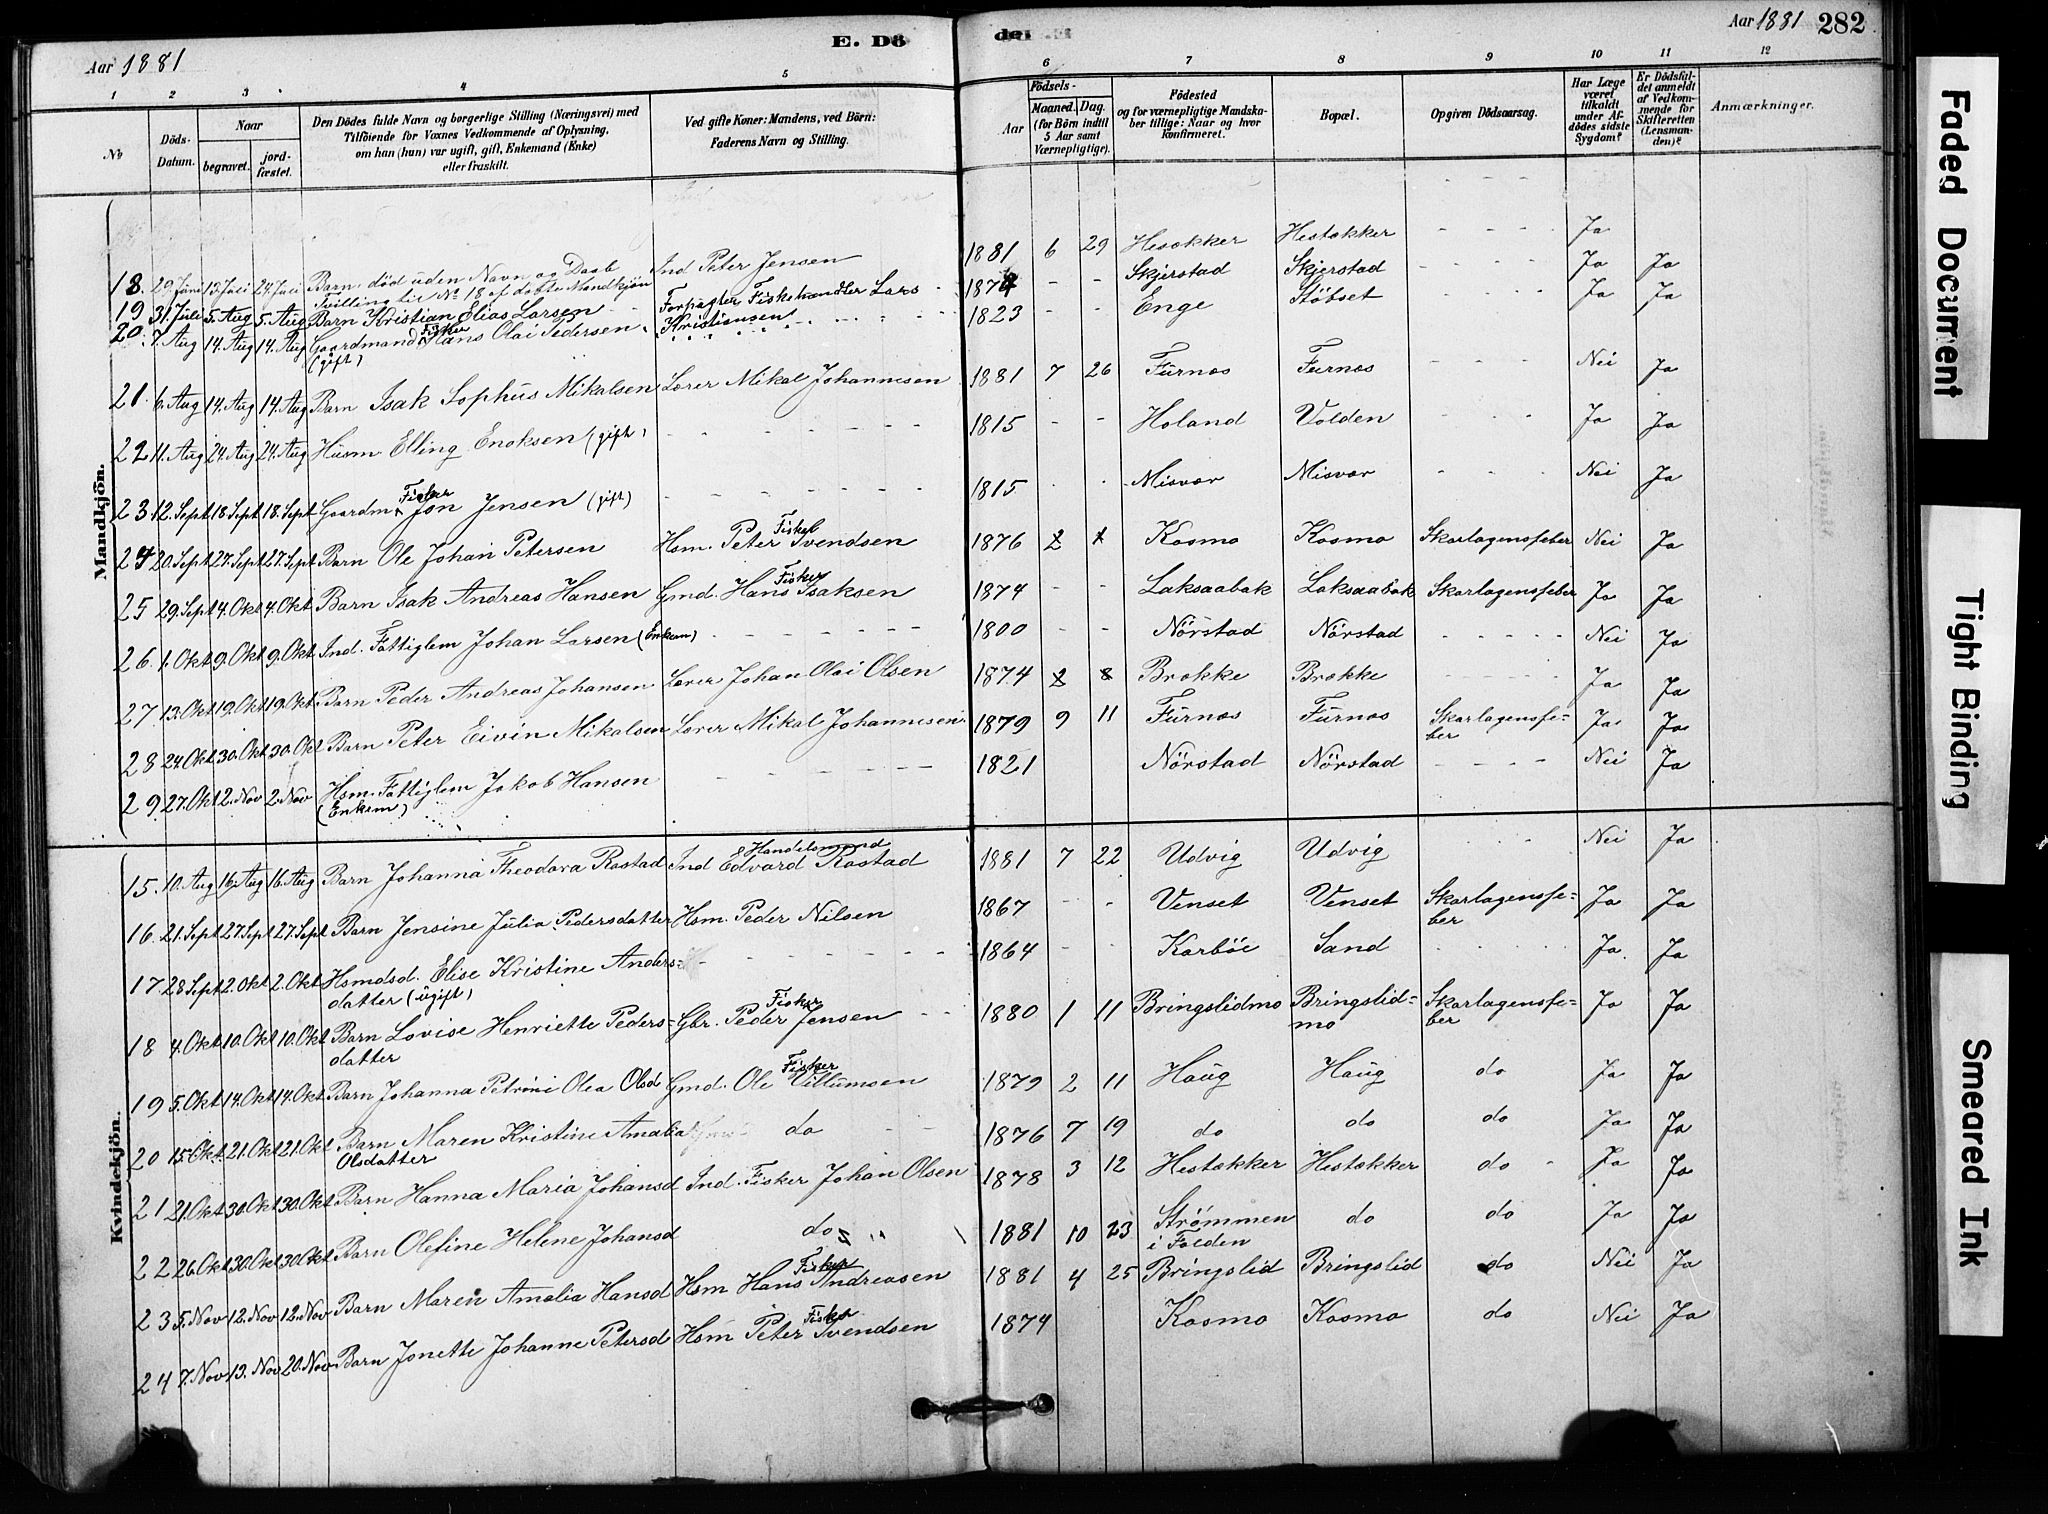 Aar 1881 E. Dö de. Aar 1881 282
1 2 3 4 5 6 7 8 9 10 11 12
No Döds-Datum. Naar begravet. jordfæstet. Den Dödes fulde Navn og borgerlige Stilling (Næringsvei) med Tilföiende for Voxnes Vedkommende af Oplysning, om han (hun) var ugift, gift, Enkemand (Enke) eller fraskilt. Ved gifte Koner: Mandens, ved Börn: Faderens Navn og Stilling. Aar Födsels- Maaned. Dag. (for Börn indtil 5 Aar samt Værnepligtige). Födested og for værnepligtige Mandskaber tillige: Naar og hvor konfirmeret. Bopæl. Opgiven Dödsaarsag. Har Læge været tilkaldt under Afdödes sidste Sygdom? Er Dödsfaldet anmeldt af Vedkommende for Skifteretten (Lensmanden)? Anmærkninger.
Mandkjön.
18. 29 Juni 13 Juli 24 Juli Barn, död uden Navn og Daab Ind Peter Jensen 1881 6 29 Hesækker Hestækker - - - Ja
Tvilling til No 18 af döbte Mandkjön
19 31. Juli 5. Aug 5. Aug Barn Kristian Elias Larsen Forpagter Fiskehandler Lars Kristiansen 1874 - - Skjerstad Skjerstad - - - Ja Ja
20. 7. Aug 14. Aug 14. Aug Gaardmand Fisker Hans Olai Pedersen (gift) 1823 - - Enge Stöbset - - - Ja Ja
21. 6. Aug 14. Aug 14. Aug Barn Isak Sophus Mikalsen Lærer Mikal Johannesen 1881 7 26 Furnæs Furnæs - - - Nei Ja
22 11. Aug 24. Aug 24. Aug Husm. Elling Enoksen (gift) - - - 1815 - - Holand Volden - - - Ja Ja
23 12. Sept 18. Sept 18. Sept Gaardm. Fisker Jon Jensen (gift) - - - 1815 - - Misvær Misvær - - - Nei Ja
24 20. Sept 27. Sept 27. Sept Barn Ole Johan Petersen Hsm. Peter Fisker Svendsen 1876 2 1 Kosmo Kosmo Skarlagensfeber Nei Ja
25 29. Sept 4. Okt 4. Okt Barn Isak Andreas Hansen Gmd. Hans Fisker Isaksen 1874 - - Laksaabak Laksaabak Skarlagensfeber Ja Ja
26. 1. Okt 9. Okt 9. Okt Ind. Fattiglem Johan Larsen (Enkem) - - - 1800 - - Nörstad Nörstad - - - Nei Ja
27 13. Okt 19. Okt 19. Okt. Barn Peder Andreas Johansen Lærer Johan Olai Olsen 1874 2 8 Brække Brække - - - Ja Ja
28 24. Okt 30. Okt 30. Okt Barn Peter Eivin Mikalsen Lærer Mikal Johannesen 1879 9 11 Furnæs Furnæs Skarlagensfe-ber Ja Ja
29. 27. Okt 2. Nov 2. Nov Hsm. Fattiglem Jakob Hansen (Enkem) - - - 1821 Nörstad Nörstad - - - Nei Ja
Kvindekjön.
15. 10. Aug 16. Aug 16. Aug Barn Johanna Theodora Rostad Ind & Handelsmand Edvard Rostad 1881 7 22 Udvig Udvig - - - Nei Ja
16. 21. Sept 27. Sept 27. Sept Barn Jensine Julia Pedersdatter Hsm. Peder Nilsen 1867 - - Venset Venset Skarlagensfe-ber Ja Ja
17. 28 Sept 2. Okt 2. Okt Hsmdsd. Elise Kristine Anders-datter (ugift) - - - 1864 - - Karböe Sand - - - Ja. Ja
18 4. Okt 10. Okt 10. Okt Barn Lovise Henriette Peders-datter Gbr. Peder Fisker Jensen 1880 1 11 Bringslidmo Bringslid-mo Skarlagensfe-ber Ja Ja
19 5. Okt 14. Okt 14. Okt Barn Johanna Petrine Olea Olsd Gmd. Ole Fisker Villumsen 1879 2 11 Haug Haug do Ja Ja
20 15. Okt. 21. Okt 21. Okt Barn Maren Kristine Amalia Olsdatter do 1876 7 19 do do do Ja Ja
21 21. Okt 30. Okt 30. Okt Barn Hanna Maria Johansd Ind. Fisker Johan Olsen 1878 3 12 Hestækker Hestækker do Ja Ja
22 26. Okt 30. Okt 30. Okt Barn Olefine Helene Johansd do 1881 10 23 Strømmen i Folden do do Ja Ja
23 5. Nov 12. Nov 12. Nov Barn Maren Amalia Hansd Hsm Hans Fisker Andreasen 1881 4 25 Bringslid Bringslid do Nei Ja
24 7. Nov 13. Nov 20. Nov Barn Jonette Johanne Petersd Hsm Peter Fisker Svendsen 1874 Kosmo Kosmo do Nei Ja
Faded Document
Tight Binding
Smeared Ink